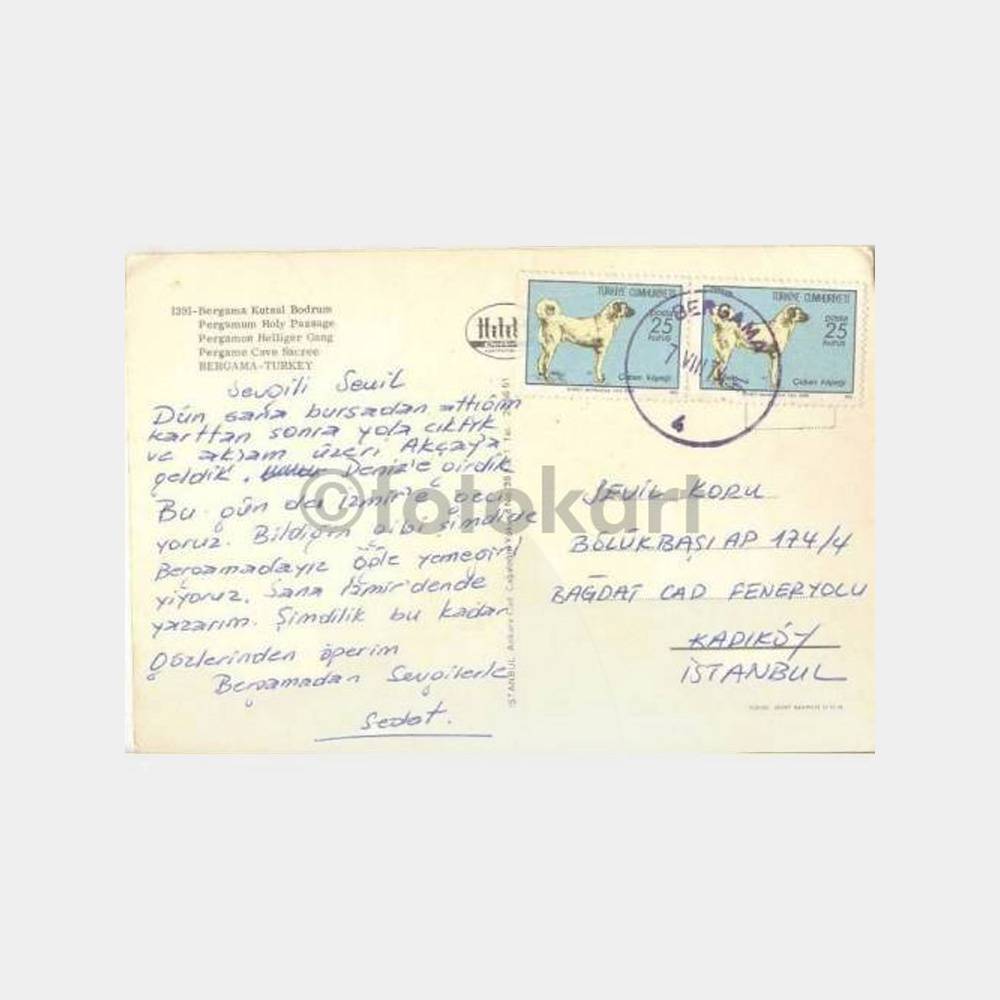 1391-Bergama Kutsal Bodrum
Pergamum Holy Passage
Pergamon Helliger Gang
Pergame Cave Sacree
BERGAMA-TURKEY
Hitit
TÜRKİYE CUMHURİYETİ
posta
25
kuruş
Çoban köpeği
TÜRKİYE CUMHURİYETİ
posta
25
kuruş
Çoban köpeği
BERGAMA
7 VIII
Sevgili Sevil
Dün sana bursadan attığım
karttan sonra yola çıktık
ve akşam üzeri Akçay'a
geldik. Deniz'e girdik
Bu gün da izmir'e geçi
yoruz. Bildiğin gibi şimdide
Bergamadayız öğle yemeğini
yiyoruz. Sana İzmir'dende
yazarım. Şimdilik bu kadar
Gözlerinden öperim
Bergamadan Sevgilerle
Sedat.
©fotokart
SEVİL KORU
BÖLÜKBAŞI AP 174/4
BAĞDAT CAD FENERYOLU
KADIKÖY
İSTANBUL
İSTANBUL Ankara Cad.